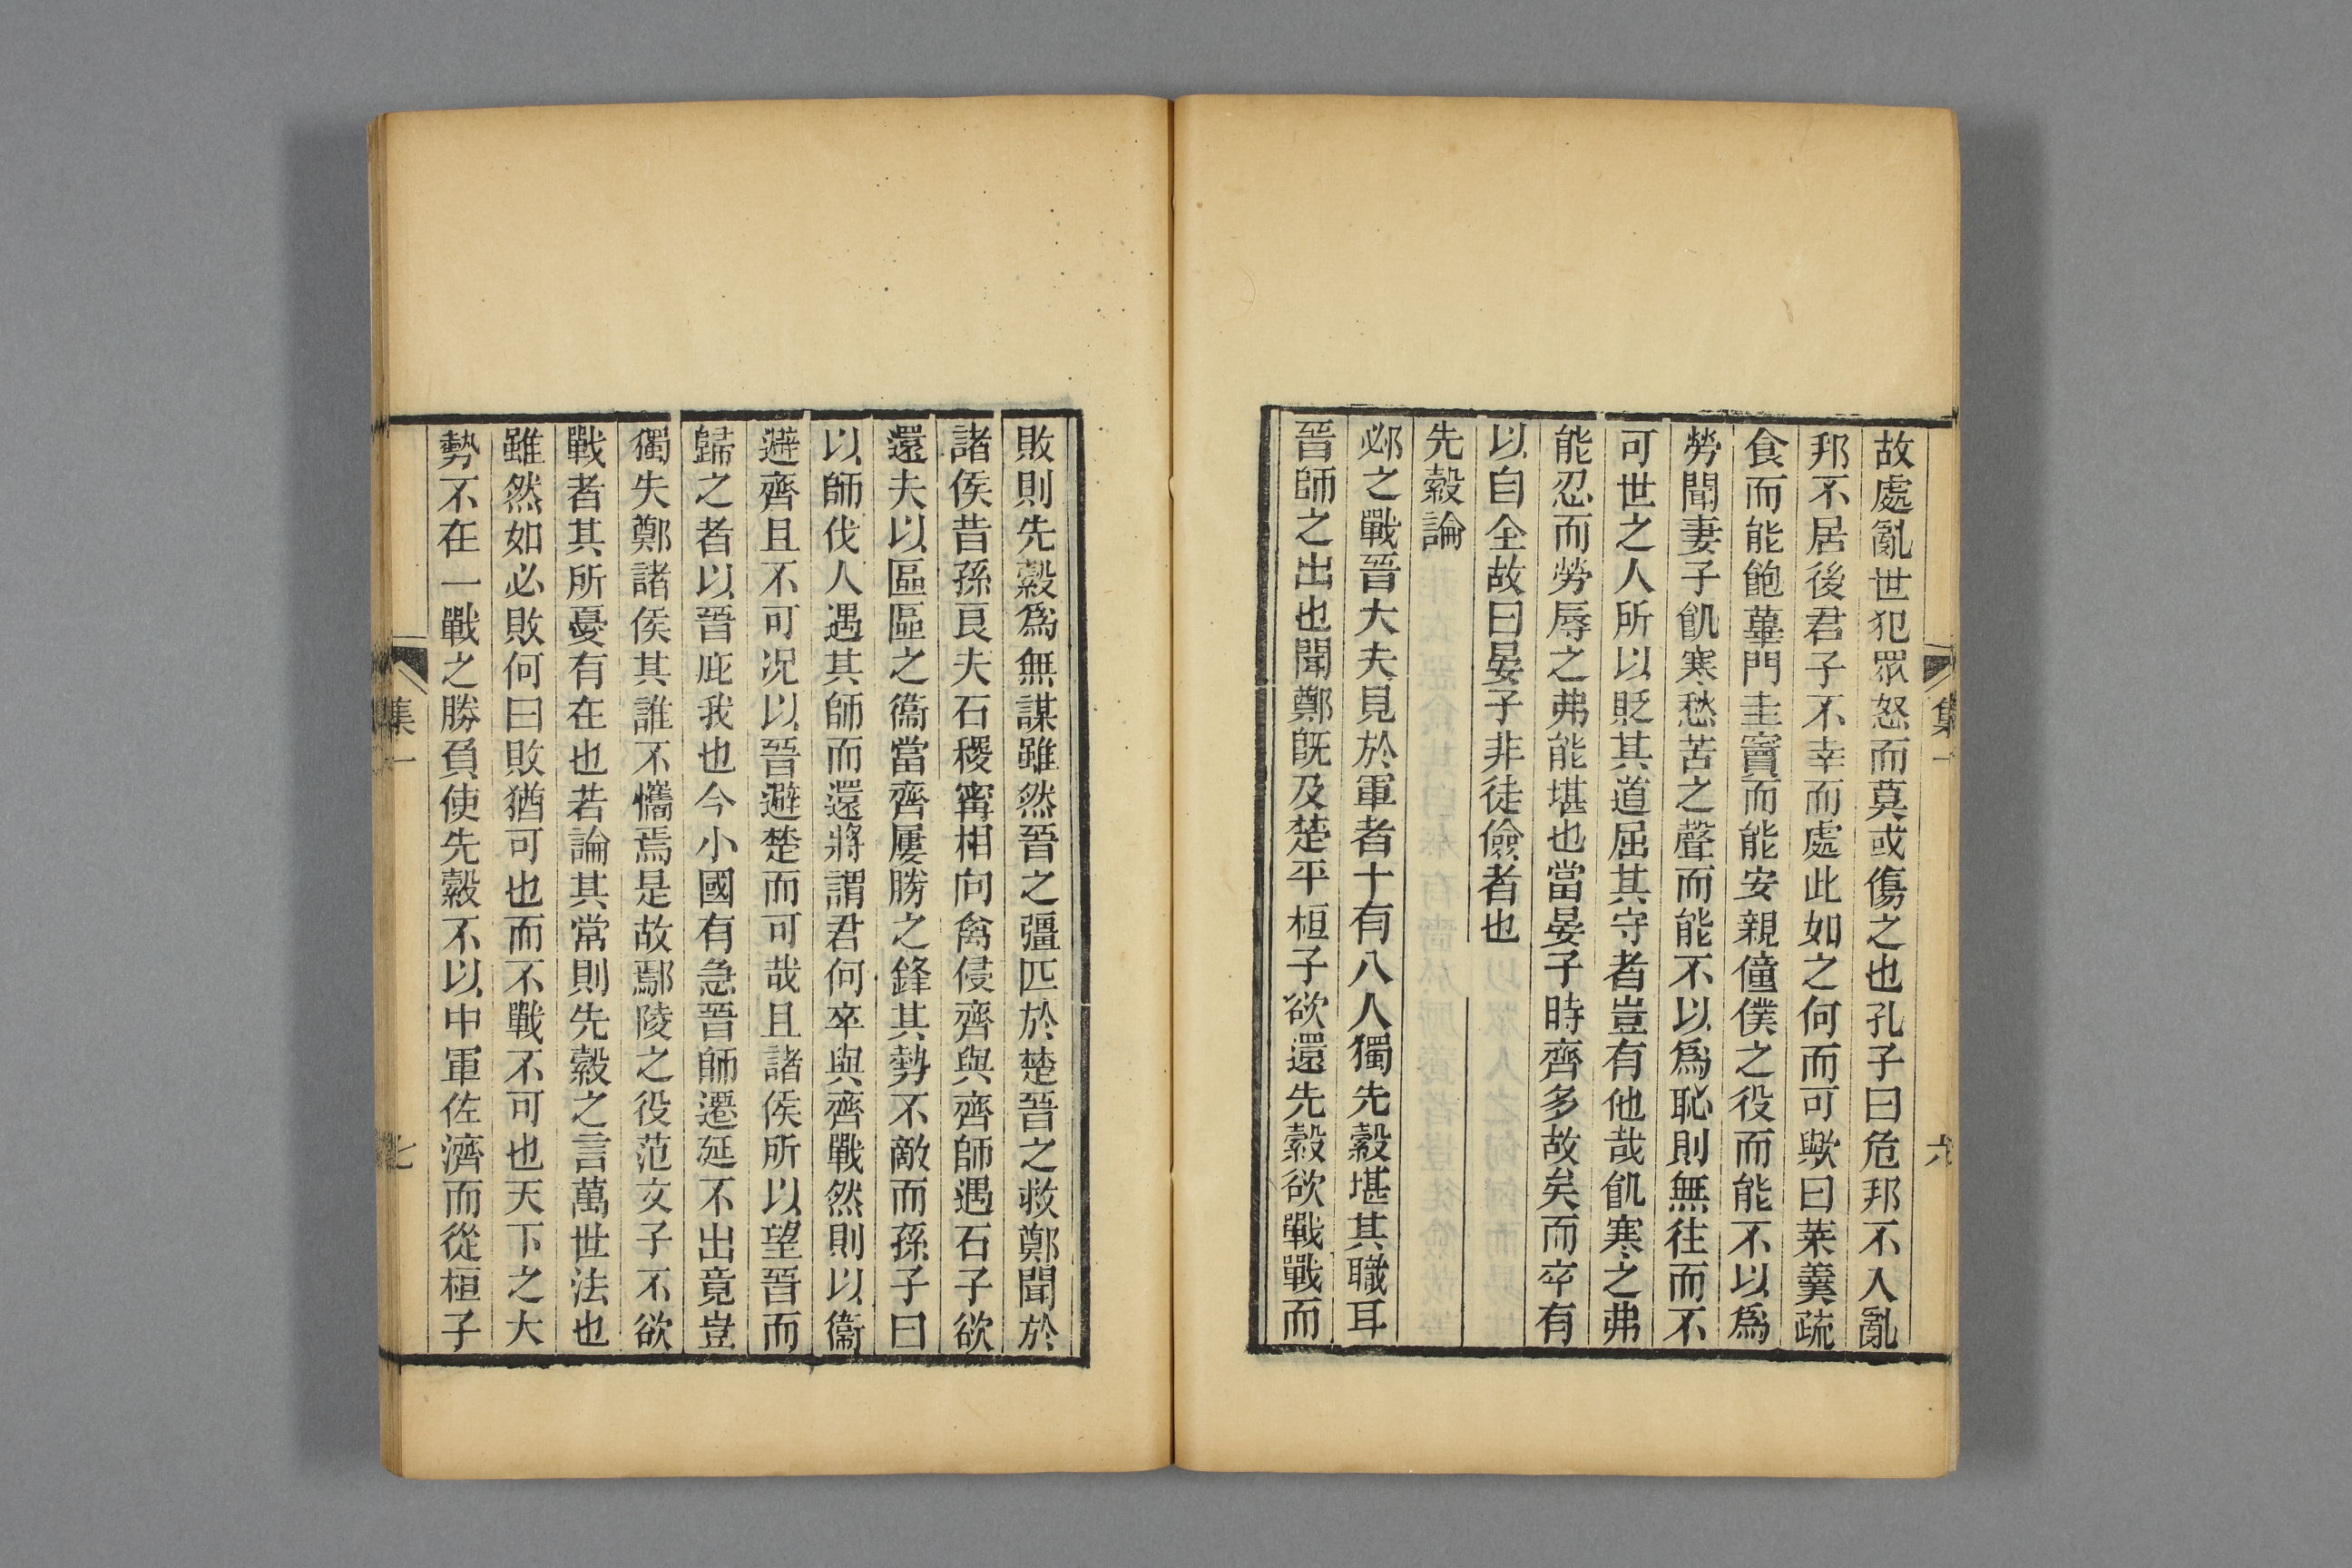 故處亂世犯眾怒而莫或傷之也孔子曰危邦不入亂
邦不居後君子不幸而處此如之何而可歟曰菜羹疏
食而能飽蓽門圭竇而能安親僮僕之役而能不以爲
勞聞妻子飢寒愁苦之聲而能不以爲恥則無往而不
可世之人所以貶其道屈其守者豈有他哉飢寒之弗
能忍而勞辱之弗能堪也當晏子時齊多故矣而卒有
以自全故曰晏子非徒儉者也
先縠論
邲之戰晉大夫見於軍者十有八人獨先縠堪其職耳
晉師之出也聞鄭旣及楚平桓子欲還先縠欲戰戰而
集一
六
敗則先縠爲無謀雖然晉之彊匹於楚晉之救鄭聞於
諸侯昔孫良夫石稷甯相向禽侵齊與齊師遇石子欲
還夫以區區之衞當齊屢勝之鋒其勢不敵而孫子曰
以師伐人遇其師而還將謂君何卒與齊戰然則以衞
避齊且不可况以晉避楚而可哉且諸侯所以望晉而
歸之者以晉庇我也今小國有急晉師遷延不出竟豈
獨失鄭諸侯其誰不懼焉是故鄢陵之役范文子不欲
戰者其所憂有在也若論其常則先縠之言萬世法也
雖然如必敗何曰敗猶可也而不戰不可也天下之大
勢不在一戰之勝負使先縠不以中軍佐濟而從桓子
集一
七